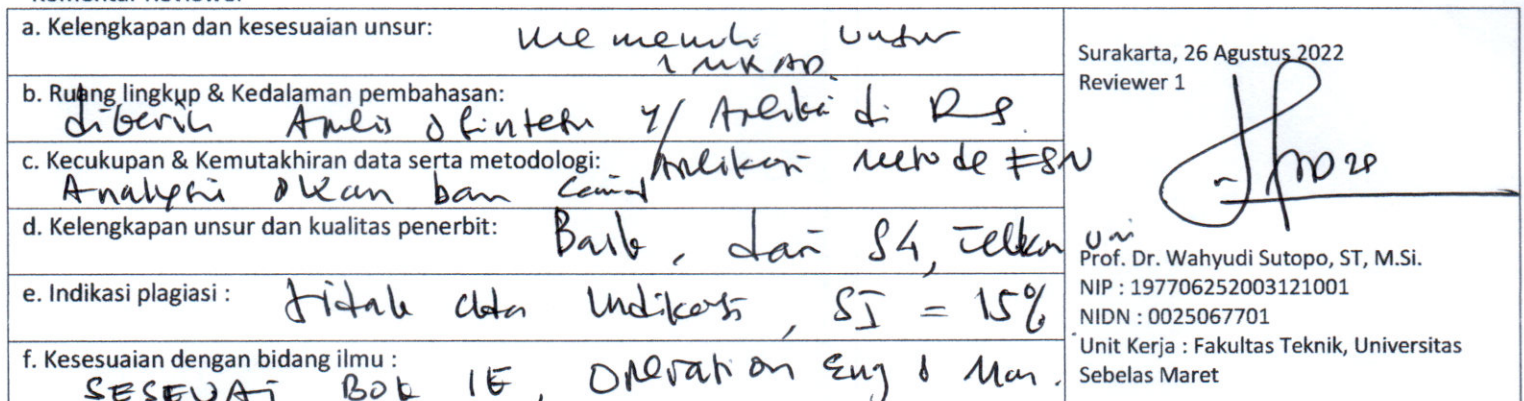 a. Kelengkapan dan kesesuaian unsur: memenuhi unsur
b. Ruang lingkup & Kedalaman pembahasan:
di RS.
c. Kecukupan & Kemutakhiran data serta metodologi: metode FSN
d. Kelengkapan unsur dan kualitas penerbit: Baik, dari S4, Telkom Uni
e. Indikasi plagiasi : tidak ada indikasi, SI = 15%
f. Kesesuaian dengan bidang ilmu :
SESEUAI BOK IE, Operation Eng & Man.
Surakarta, 26 Agustus 2022
Reviewer 1
Prof. Dr. Wahyudi Sutopo, ST, M.Si.
NIP : 197706252003121001
NIDN : 0025067701
Unit Kerja : Fakultas Teknik, Universitas
Sebelas Maret